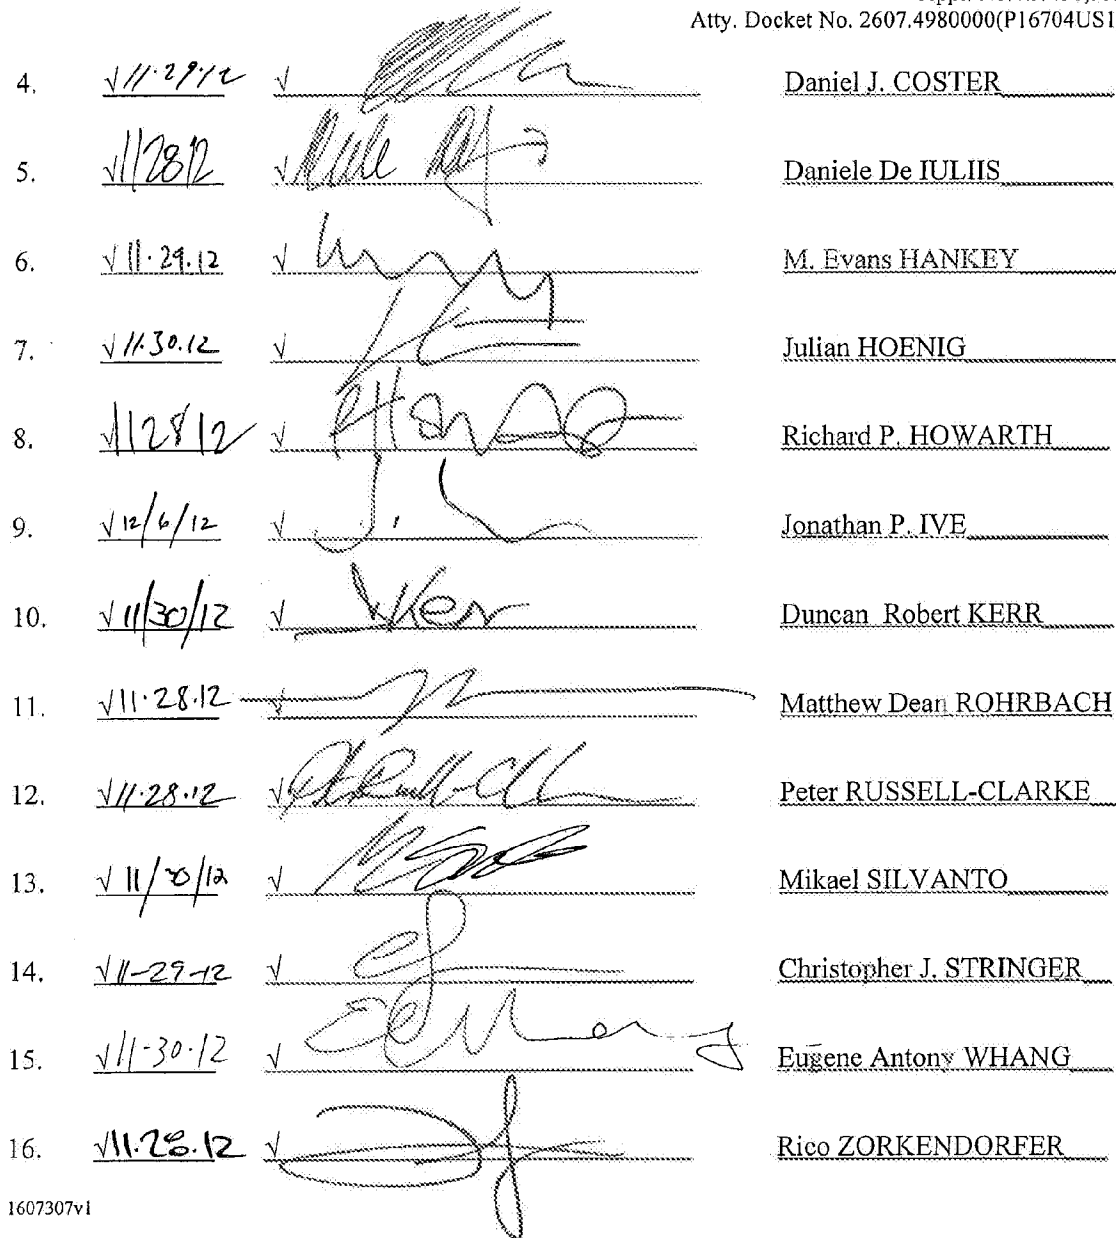 Atty. Docket No. 2607.4980000(P16704US1
4. √ 11·29·12 √ Daniel J. COSTER
5. √ 11/28/12 √ Daniele De IULIIS
6. √ 11·29.12 √ M. Evans HANKEY
7. √ 11.30.12 √ Julian HOENIG
8. √ 11 28 12 √ Richard P. HOWARTH
9. √ 12/6/12 √ Jonathan P. IVE
10. √ 11/30/12 √ Duncan Robert KERR
11. √ 11·28.12 √ Matthew Dean ROHRBACH
12. √ 11·28·12 √ Peter RUSSELL-CLARKE
13. √ 11/30/12 √ Mikael SILVANTO
14. √ 11-29-12 √ Christopher J. STRINGER
15. √ 11-30·12 √ Eugene Antony WHANG
16. √ 11.28.12 √ Rico ZORKENDORFER
1607307v1